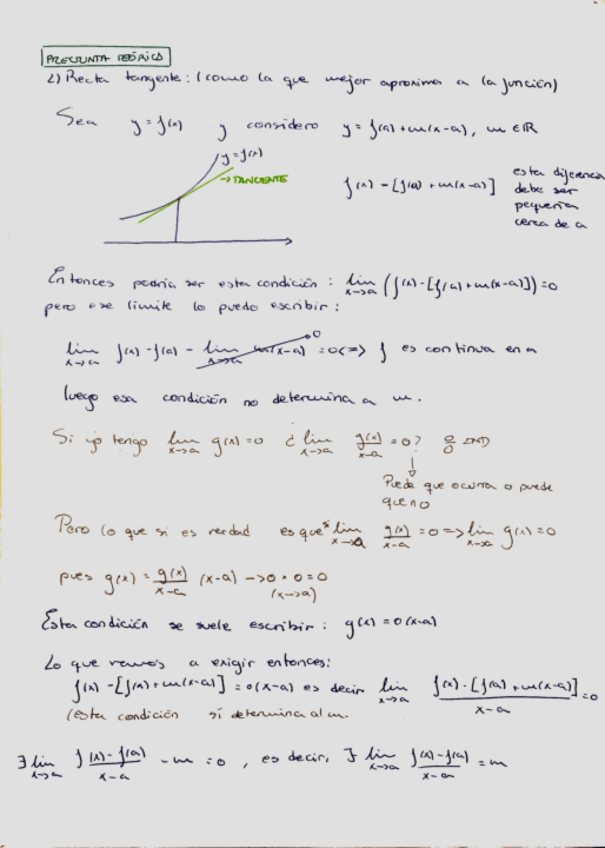 PREGUNTA TEÓRICA
2) Recta tangente: (como la que mejor aproxima a la función)
Sea y = f(x) y considero y = f(a) + m(x-a), m ∈ ℝ
y = f(x)
→ TANGENTE
f(x) - [f(a) + m(x-a)]
esta diferencia
debe ser
pequeña
cerca de a
Entonces podría ser esta condición: lim x→a (f(x) - [f(a) + m(x-a)]) = 0
pero ese límite lo puedo escribir:
lim x→a f(x) - f(a) - lim x→a m(x-a) → 0 = 0 <=> f es continua en a
luego esa condición no determina a m.
Si yo tengo lim x→a g(x) = 0 ¿ lim x→a g(x)/x-a = 0? 0/0 IND
↓
Puede que ocurra o puede
que no
Pero lo que si es verdad es que lim x→a g(x)/x-a = 0 => lim x→a g(x) = 0
pues g(x) = g(x)/x-a (x-a) → 0 · 0 = 0
(x→a)
Esta condición se suele escribir: g(x) = o(x-a)
Lo que vamos a exigir entonces:
f(x) - [f(a) + m(x-a)] = o(x-a) es decir lim x→a f(x) - [f(a) + m(x-a)]/x-a = 0
(esta condición sí determina al m.
∃ lim x→a f(x) - f(a)/x-a - m = 0, es decir, ∃ lim x→a f(x) - f(a)/x-a = m